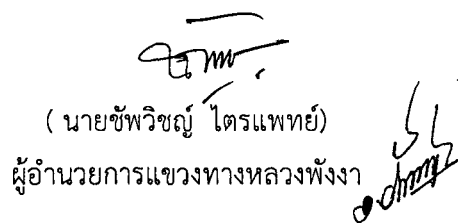 ( นายชัพวิชญ์ ไตรแพทย์)
ผู้อำนวยการแขวงทางหลวงพังงา